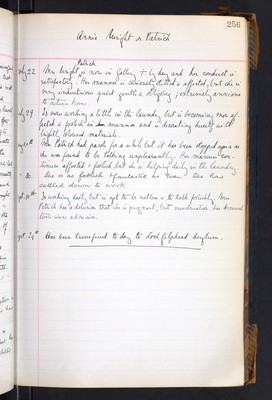 256
Annie Wright or Patrick
Patrick
July 22 Mrs Wright is now in Gallery + by day and her conduct is
satisfactory. Her manner is conceited & affected, but she is
very industrious quiet gentle & obliging; extremely anxious
to return home.
July 29 Is now working a little in the laundry but is becoming more af-
fected & foolish in her manner and is decorating herself with
bright coloured materials.
Mrs Patrick had parole for a while but it has been stopped again as
she was found to be talking unpleasantly. Her manner con-
tinues affected & foolish but she is helping daily in the laundry
She is as foolish & fantastic as ever. She has
settled down to work
Is working daily but is apt to be restless & to talk foolishly. Mrs
Patrick has a delusion that she is pregnant, but menstruation has occurred
since admission.
Sept. 29th Has been transferred to day to Lochgilphead Asylum.